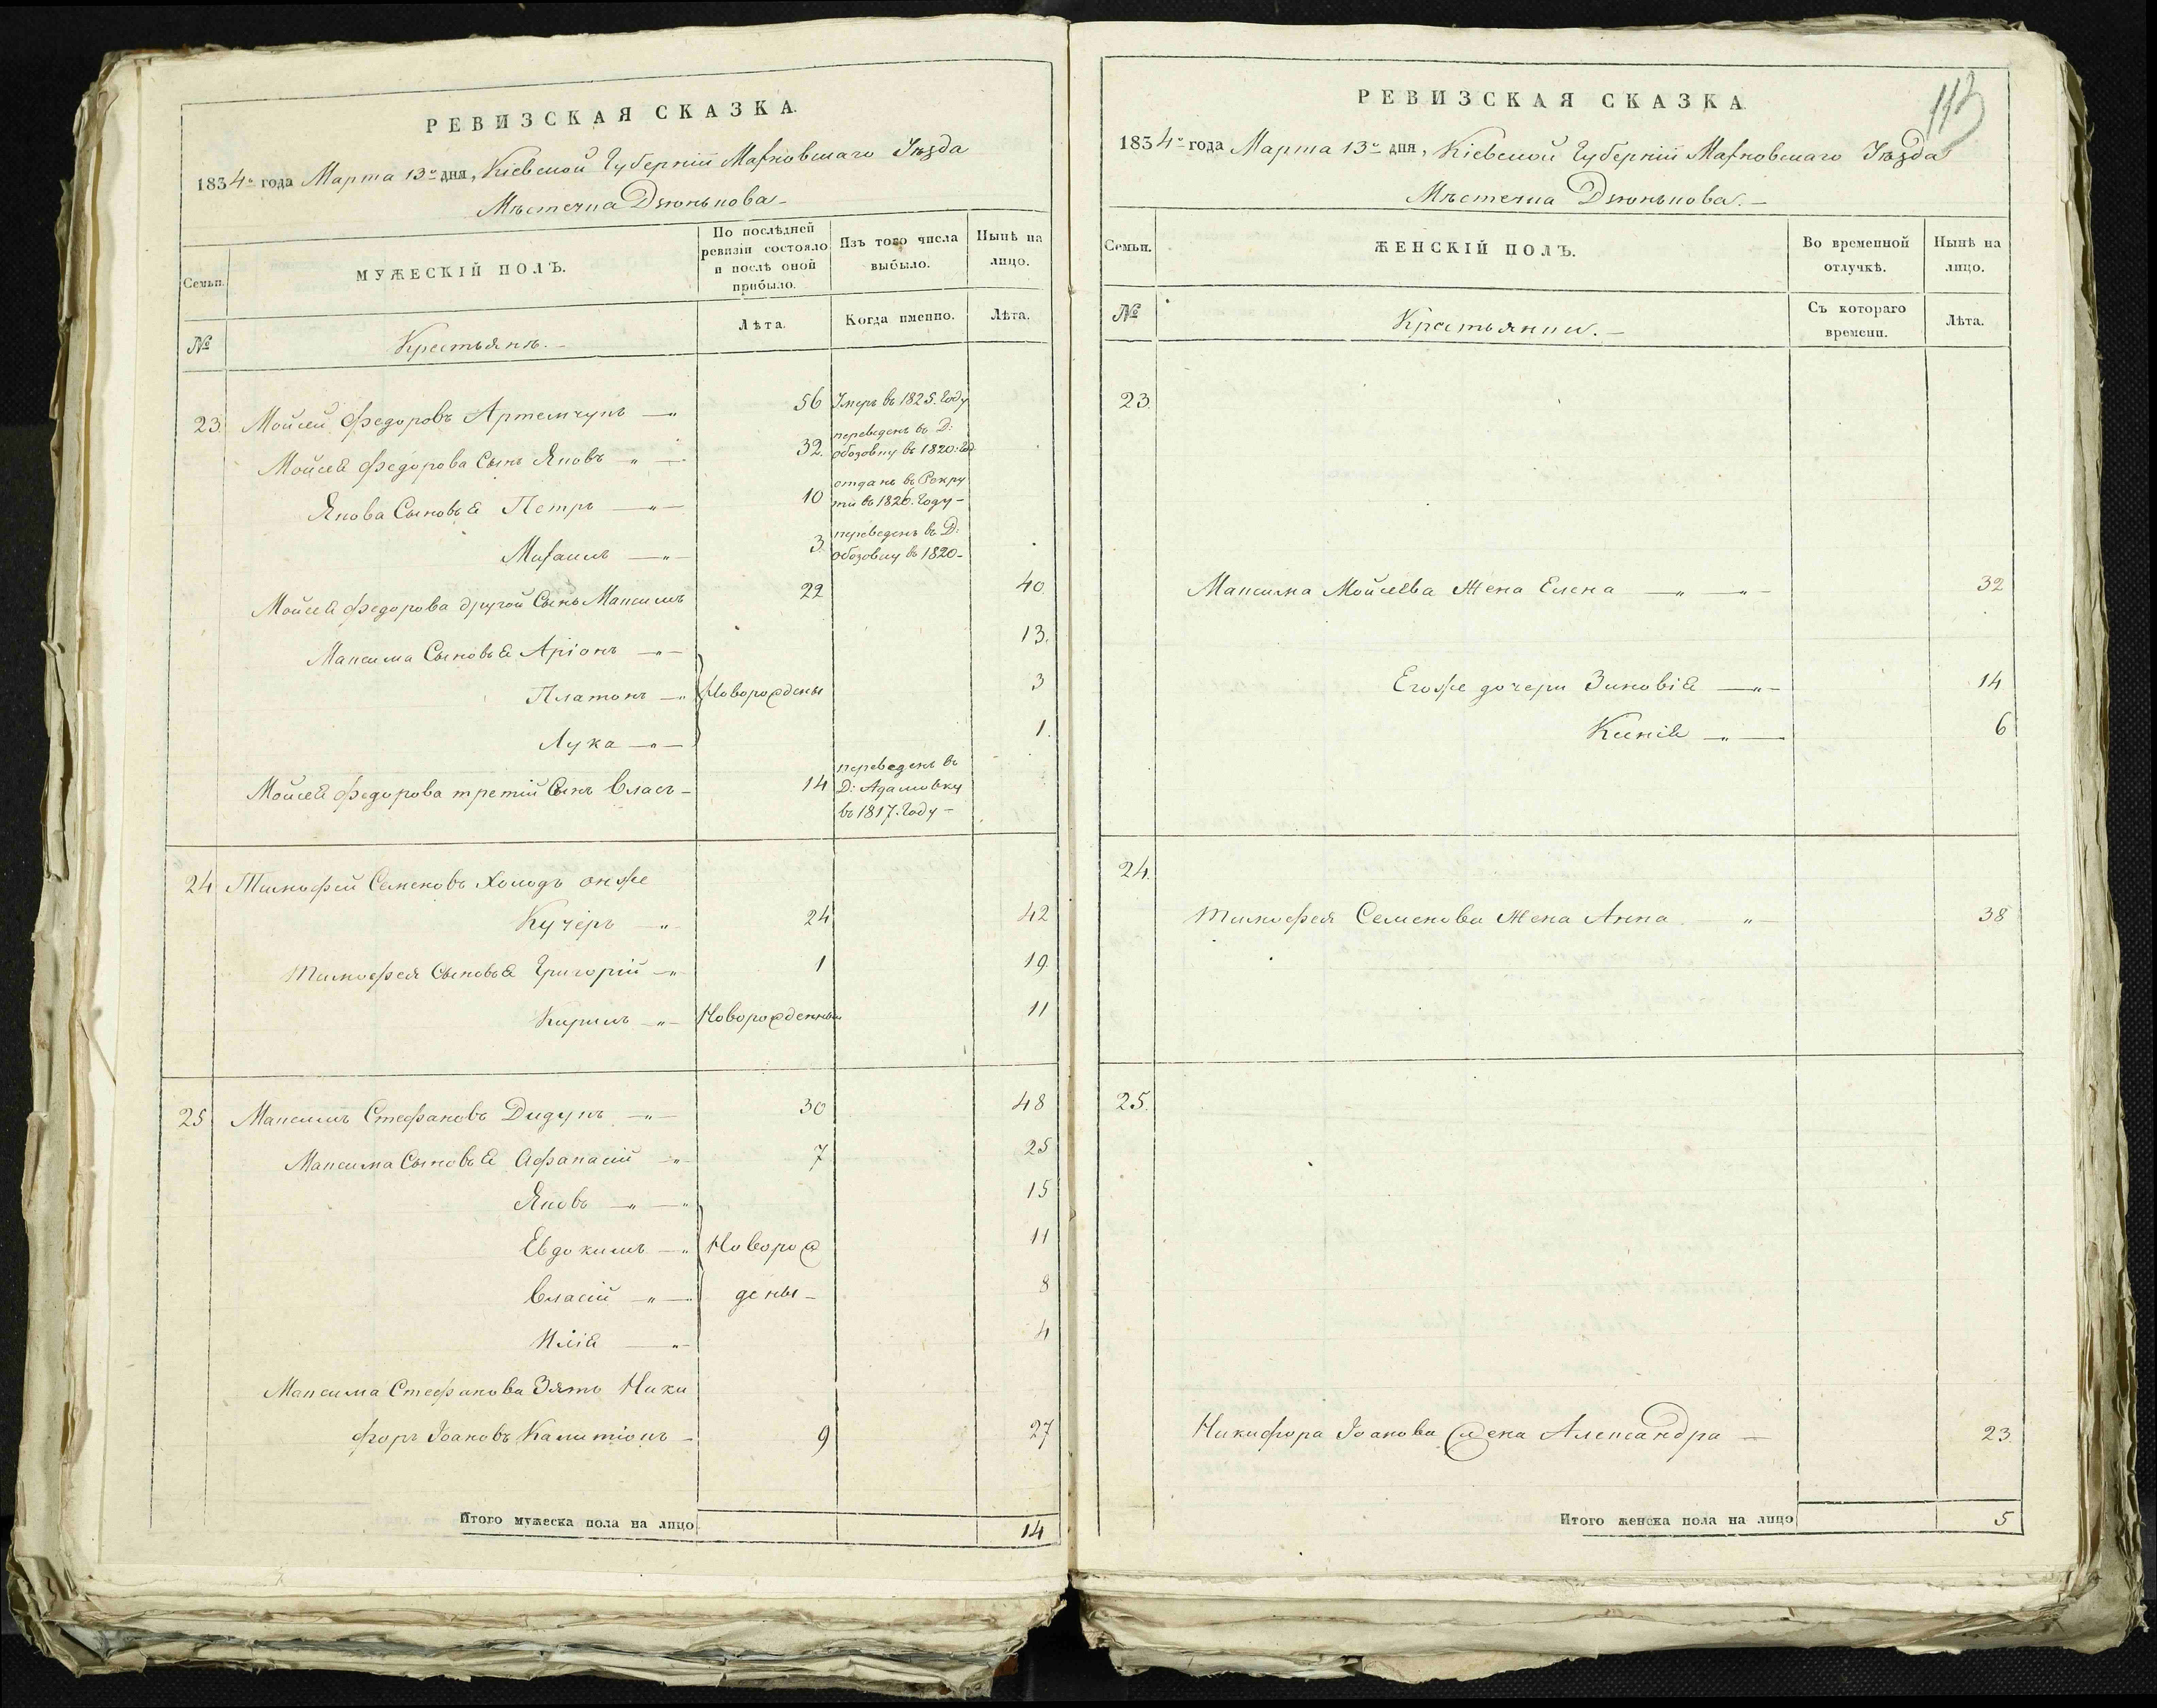 РЕВИЗСКАЯ СКАЗКА.
1834го года Марта 13го дня, Кіевской Губерніи Махновскаго Уѣзда
Мѣстечка Дзюнькова
Семьи.
МУЖЕСКІЙ ПОЛЪ.
По послѣдней ревизіи состояло и послѣ оной прибыло.
Изъ того числа выбыло.
Нынѣ на лицо.
№
Крестьянъ.
Лѣта.
Когда именно.
Лѣта.
23 Мойсей Федоровъ Артемчукъ 56 Умеръ въ 1825. Году
Мойсея Федорова Сынъ Яковъ 32. переведенъ въ Д: обозовку въ 1820: Год
Якова Сыновья Петръ 10 отданъ въ Рокру ти въ 1826. Году
Михаилъ 3. переведенъ въ Д: обозовку въ 1820
Мойсея Федорова другой Сынъ Максимъ 22 40
Максима Сыновья Аріонъ 13.
Платонъ Новорождены 3
Лука 1.
Мойсея Федорова третій Сынъ Власъ 14 переведенъ въ Д: Адамовку въ 1817. Году
24 Тимофей Семеновъ Холодъ онже
Кучеръ 24 42
Тимофея Сыновья Григорій 1 19.
Кирилъ Новорожденный 11
25 Максимъ Стефановъ Дидукъ 30 48
Максима Сыновья Афанасій 7 25
Яковъ 15
ЕвдокимъНоворож 11
Власій дены 8
Илія 4
Максима Стефанова Зять Ники
форъ Іоановъ 9 27
Итого мужеска пола на лицо 14
113
РЕВИЗСКАЯ СКАЗКА.
1834го года Марта 13го дня, Кіевской Губерніи Махновскаго Уѣзда
Мѣстечка Дзюнькова.
Семьи.
ЖЕНСКІЙ ПОЛЪ.
Во временной отлучкѣ.
Нынѣ на лицо.
№
Крестьянки.
Съ котораго времени.
Лѣта.
23.
Максима Мойсеева Жена Елена 32
Егоже дочери Зиновія 14
Ксенія 6
24.
Тимофея Семенова Жена Анна 38
25.
Никифора Іоанова Жена Александра 23.
Итого женска пола на лицо 5